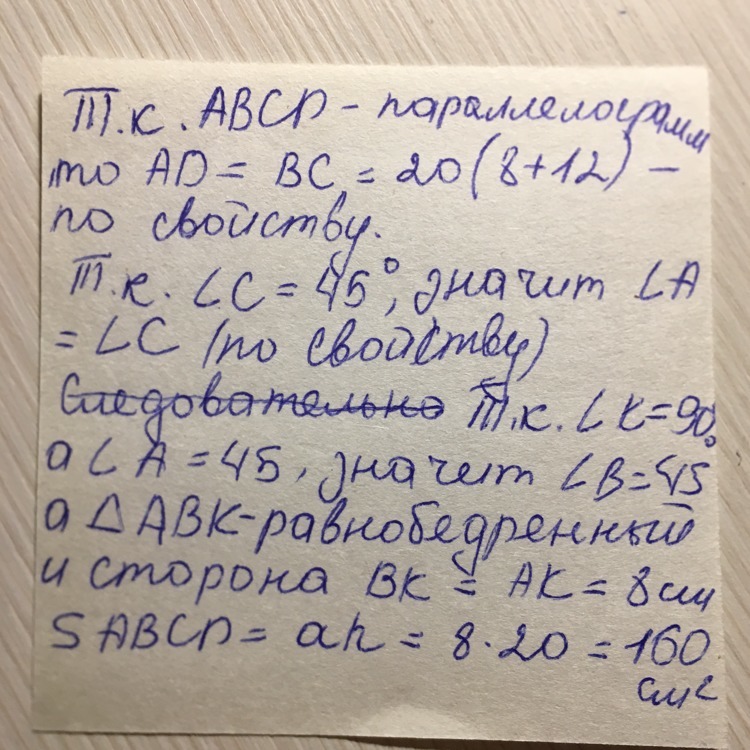 Т.к. ABCD - параллелограмм
то AD = BC = 20 (8+12) -
по свойству.
Т.к. ∠C = 45°, значит ∠A
= ∠C (по свойству)
Следовательно Т.к. ∠K = 90°,
а ∠A = 45, значит ∠B = 45
а △ABK - равнобедренный
и сторона BK = AK = 8 см
SABCD = ah = 8 · 20 = 160
см²